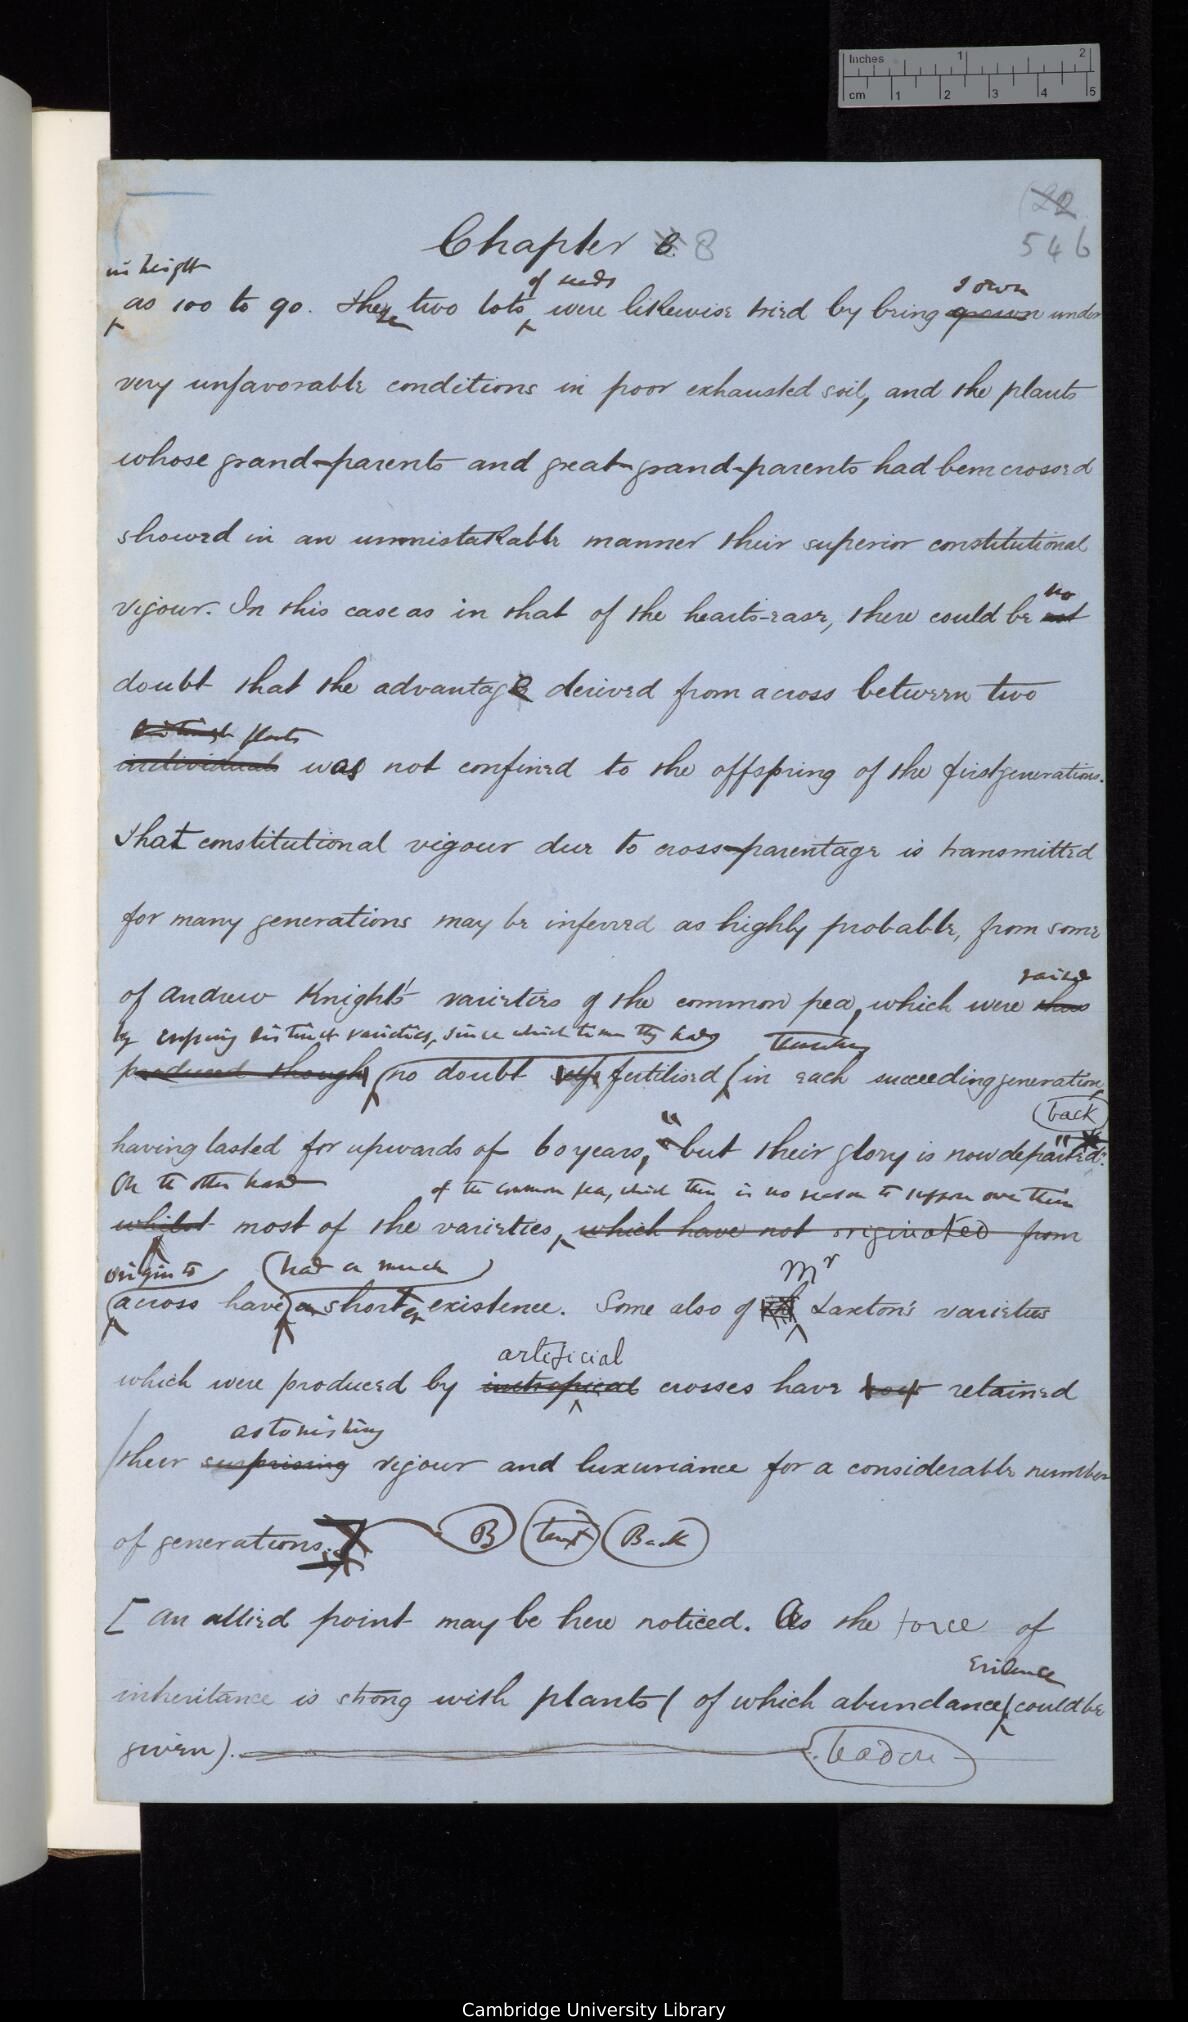 Inches 1 2
cm 1 2 3 4 5
(22
546
Chapter 6. 8
in height
of seeds sown
as 100 to 90. These two lots were likewise tried by being grown under
very unfavorable conditions in poor exhausted soil, and the plants
whose grand-parents and great-grand-parents had been crossed
showed in an unmistakable manner their superior constitutional
vigour. In this case as in that of the hearts-ease, there could be not
no
doubt that the advantage derived from a cross between two
plants
individuals was not confined to the offspring of the first generations.
That constitutional vigour due to cross-parentage is transmitted
for many generations may be inferred as highly probable, from some
of Andrew Knight's varieties of the common pea, which were thus
raised
by crossing distinct varieties, since which time they had
produced though no doubt self fertilised in each succeeding generation
back
having lasted for upwards of 60 years, "but their glory is now departed."
On the other hand of the common pea, which there is no reason to suppose owe their
whilst most of the varieties, which have not originated from
origin to had a much
a cross have a shorter existence. Some also of Laxton's varieties
Mr
artificial
which were produced by crosses have retained
astonishing
their surprising vigour and luxuriance for a considerable number
of generations. B Back
[ An allied point may be here noticed. As the force of
evidence
inheritance is strong with plants ( of which abundance could be
given).
Cambridge University Library